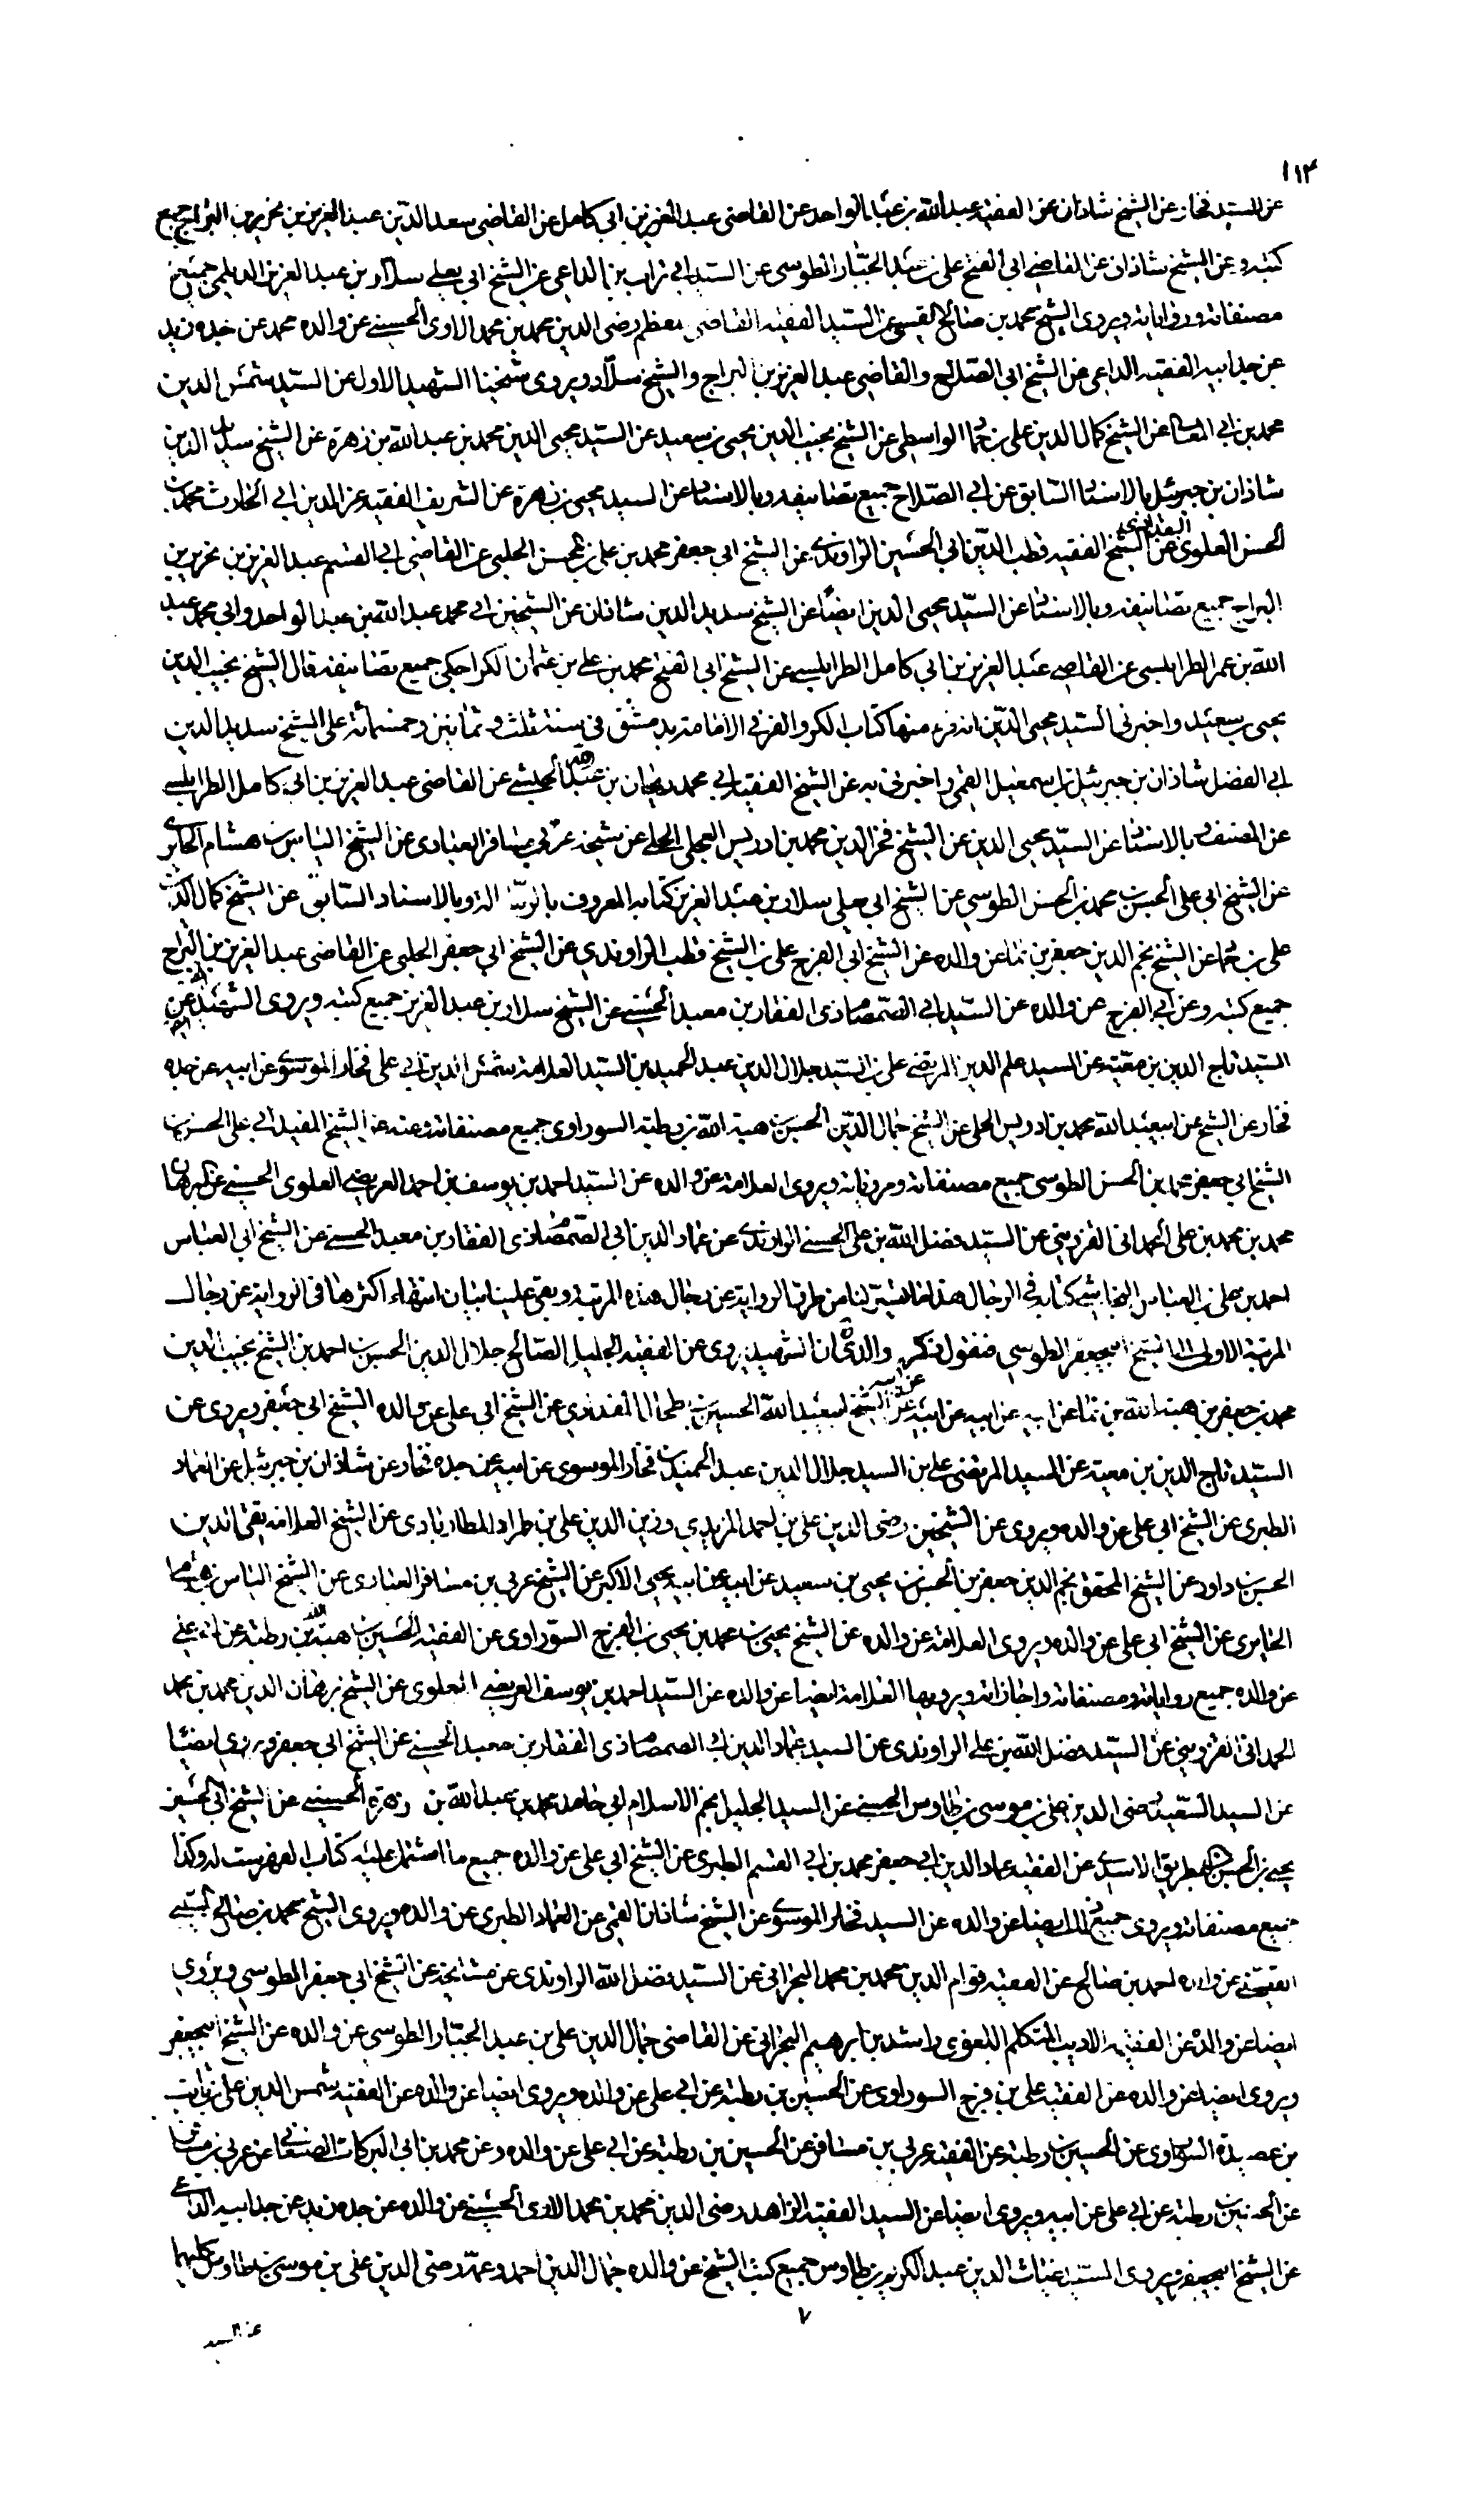 ١١٣
عن السيد فخار عن الشيخ شاذان عن الفقيه عبد الله بن عبد الواحد عن القاضى عبد العزيز بن ابى كامل عن القاضى سعد الدين عبد العزيز بن نحرير بن البراج جميع
كتبه وعن الشيخ شاذان عن القاضى ابى الفتح على بن عبد الجبار الطوسى عن السيد ابى تراب بن الداعى عن الشيخ ابى يعلى سلار بن عبد العزيز الديلمى جميع
مصنفاته ورواياته ويروى الشيخ محمد بن صالح القسينى عن السيد الفقيه القاضى معظم رضى الدين محمد بن محمد الاوى الحسينى عن والده محمد عن جده زيد
عن جد ابيه الفقيه الداعى عن الشيخ ابى الصلاح والقاضى عبد العزيز بن البراج والشيخ سلار ويروى شيخنا الشهيد الاول عن السيد شمس الدين
محمد بن ابى المعالى عن الشيخ كمال الدين على بن حماد الواسطى عن الشيخ نجيب الدين يحيى بن سعيد عن السيد محيى الدين محمد بن عبد الله بن زهرة عن الشيخ سديد الدين
شاذان بن جبرئيل بالاسناد السابق عن ابى الصلاح جميع تصانيفه وبالاسناد عن السيد محيى بن زهرة عن الشريف الفقيه عز الدين ابى الحارث محمد بن
الحسن العلوى البغدادى عن الشيخ الفقيه قطب الدين ابى الحسين الراوندى عن الشيخ ابى جعفر محمد بن على بن محسن الحلبى عن القاضى ابى القسم عبد العزيز بن نحرير بن
البراج جميع تصانيفه وبالاسناد عن السيد محيى الدين ايضا عن الشيخ سديد الدين شاذان عن الشيخين ابى محمد عبد الله بن عبد الواحد وابى محمد عبد
الله بن عمر الطرابلسى عن القاضى عبد العزيز بن ابى كامل الطرابلسى عن الشيخ ابى الفتح محمد بن على بن عثمان الكراجكى جميع تصانيفه قال الشيخ نجيب الدين
يحيى بن سعيد واخبرنى السيد محيى الدين انه قرء منها كتاب الكر والفر فى الامامة بدمشق فى سنة ثلث وثمانين وخمسمائة على الشيخ سديد الدين
ابى الفضل شاذان بن جبرئيل بن اسمعيل القمى واخبرنى به عن الشيخ الفقيه ابى محمد ريحان بن عبد الله الحبشى عن القاضى عبد العزيز بن ابى كامل الطرابلسى
عن المصنف وبالاسناد عن السيد محيى الدين عن الشيخ فخر الدين محمد بن ادريس العجلى الحلى عن شيخه عربى بن مسافر العبادى عن الشيخ الياس بن هشام الحائرى
عن الشيخ ابى على الحسن بن محمد بن الحسن الطوسى عن الشيخ ابى يعلى سلار بن عبد العزيز كتابه المعروف بالرسالة وبالاسناد السابق عن الشيخ كمال الدين
على بن حماد عن الشيخ نجم الدين جعفر بن نما عن والده عن الشيخ ابى الفرج على بن الشيخ قطب الراوندى عن الشيخ ابى جعفر الحلبى عن القاضى عبد العزيز بن البراج
جميع كتبه وعن ابى الفرج عن والده عن السيد ابى الصمصام ذى الفقار بن معبد الحسنى عن الشيخ سلار بن عبد العزيز جميع كتبه ويروى الشهيد عن
السيد تاج الدين بن معية عن السيد علم الدين المرتضى على بن السيد جلال الدين عبد الحميد بن السيد العلامة شمس الدين ابى على فخار الموسوى عن ابيه عن جده
فخار عن الشيخ عن ابى عبد الله محمد بن ادريس الحلى عن الشيخ جمال الدين الحسين بن هبة الله بن رطبة السوراوى جميع مصنفاته وعنه عن الشيخ المفيد ابى على الحسن بن
الشيخ ابى جعفر محمد بن الحسن الطوسى جميع مصنفاته ومروياته ويروى العلامة عن والده عن السيد احمد بن يوسف بن احمد العريضى العلوى الحسينى عن البرهان
محمد بن محمد بن على الحمدانى القزوينى عن السيد فضل الله بن على الحسنى الراوندى عن عماد الدين ابى الصمصام ذى الفقار بن معبد الحسنى عن الشيخ ابى العباس
احمد بن على بن العباس النجاشى كتابه فى الرجال هذا ما تيسر لنا من طرق الرواية عن رجال هذه المرتبة وبقى علينا بيان انتهاء اكثرها فى الرواية عن رجال
المرتبة الاولى الى الشيخ ابيجعفر الطوسى فنقول ذكر والدى ان الشهيد يروى عن الفقيه الجليل الصالح جلال الدين الحسن بن احمد بن الشيخ نجيب الدين
محمد بن جعفر بن هبة الله بن نما عن ابيه عن ابيه عن ابيه عن ابيه عن الشيخ ابيعبد الله الحسين بن طحال المقدادى عن الشيخ ابى على عن والده الشيخ ابى جعفر ويروى عن
السيد تاج الدين بن معية عن السيد المرتضى على بن السيد جلال الدين عبد الحميد بن فخار الموسوى عن ابيه عن جده فخار عن شاذان بن جبرئيل عن العماد
الطبرى عن الشيخ ابى على عن والده ويروى عن الشيخين رضى الدين على بن احمد المزيدى وزين الدين على بن طراد المطارابادى عن الشيخ العلامة تقى الدين
الحسن بن داود عن الشيخ المحقق نجم الدين جعفر بن الحسن بن يحيى بن سعيد عن ابيه عن ابيه يحيى الاكبر عن الشيخ عربى بن مسافر العبادى عن الشيخ الياس بن هشام
الحايرى عن الشيخ ابى على عن والده ويروى العلامة عن والده عن الشيخ يحيى بن محمد بن يحيى بن الفرج السوراوى عن الفقيه الحسين بن هبة الله بن رطبة عن ابى على
عن والده جميع رواياته ومصنفاته واجازاته ويرويها العلامة ايضا عن والده عن السيد احمد بن يوسف العريضى العلوى عن الشيخ برهان الدين محمد بن محمد
الحمدانى القزوينى عن السيد فضل الله بن على الراوندى عن السيد عماد الدين ابى الصمصام ذى الفقار بن معبد الحسنى عن الشيخ ابى جعفر ويروى ايضا
عن السيد السعيد رضى الدين على بن موسى بن طاوس الحسنى عن السيد الجليل نجم الاسلام ابى حامد محمد بن عبد الله بن زهرة الحسينى عن الشيخ ابى الحسين
يحيى بن الحسن بن بطريق الاسدى عن الفقيه عماد الدين ابى جعفر محمد بن ابى القسم الطبرى عن الشيخ ابى على عن والده جميع ما اشتمل عليه كتاب الفهرست له وكذا
جميع مصنفاته ويروى جميع ذلك ايضا عن والده عن السيد فخار الموسوى عن الشيخ شاذان القمى عن العماد الطبرى عن والده ويروى الشيخ محمد بن صالح السيبى
القسينى عن والده احمد بن صالح عن الفقيه قوام الدين محمد بن محمد البحرانى عن السيد فضل الله الراوندى عن مشايخه عن الشيخ ابى جعفر الطوسى ويروى
ايضا عن والده عن الفقيه الاديب المتكلم اللغوى راشد بن ابرهيم البحرانى عن القاضى جمال الدين على بن عبد الجبار الطوسى عن والده عن الشيخ ابيجعفر
ويروى ايضا عن والده عن الفقيه على بن فرج السوراوى عن الحسين بن رطبة عن ابى على عن والده ويروى ايضا عن والده عن الفقيه شمس الدين على بن ثابت
بن عصيدة السوراوى عن الحسين بن رطبة عن الفقيه عربى بن مسافر عن الحسين بن رطبة عن ابى على عن والده وعن محمد بن ابى البركات الصنعانى عن عربى بن مسافر
عن الحسين بن رطبة عن ابى على عن ابيه ويروى ايضا عن السيد الفقيه الزاهد رضى الدين محمد بن محمد الاوى الحسينى عن والده عن جده زيد عن جد ابيه الداعى
عن الشيخ ابيجعفر ويروى السيد غياث الدين عبد الكريم بن طاوس جميع كتب الشيخ عن والده جمال الدين احمد وعمه رضى الدين على بن موسى بن طاوس كليهما
عن السيد
٧